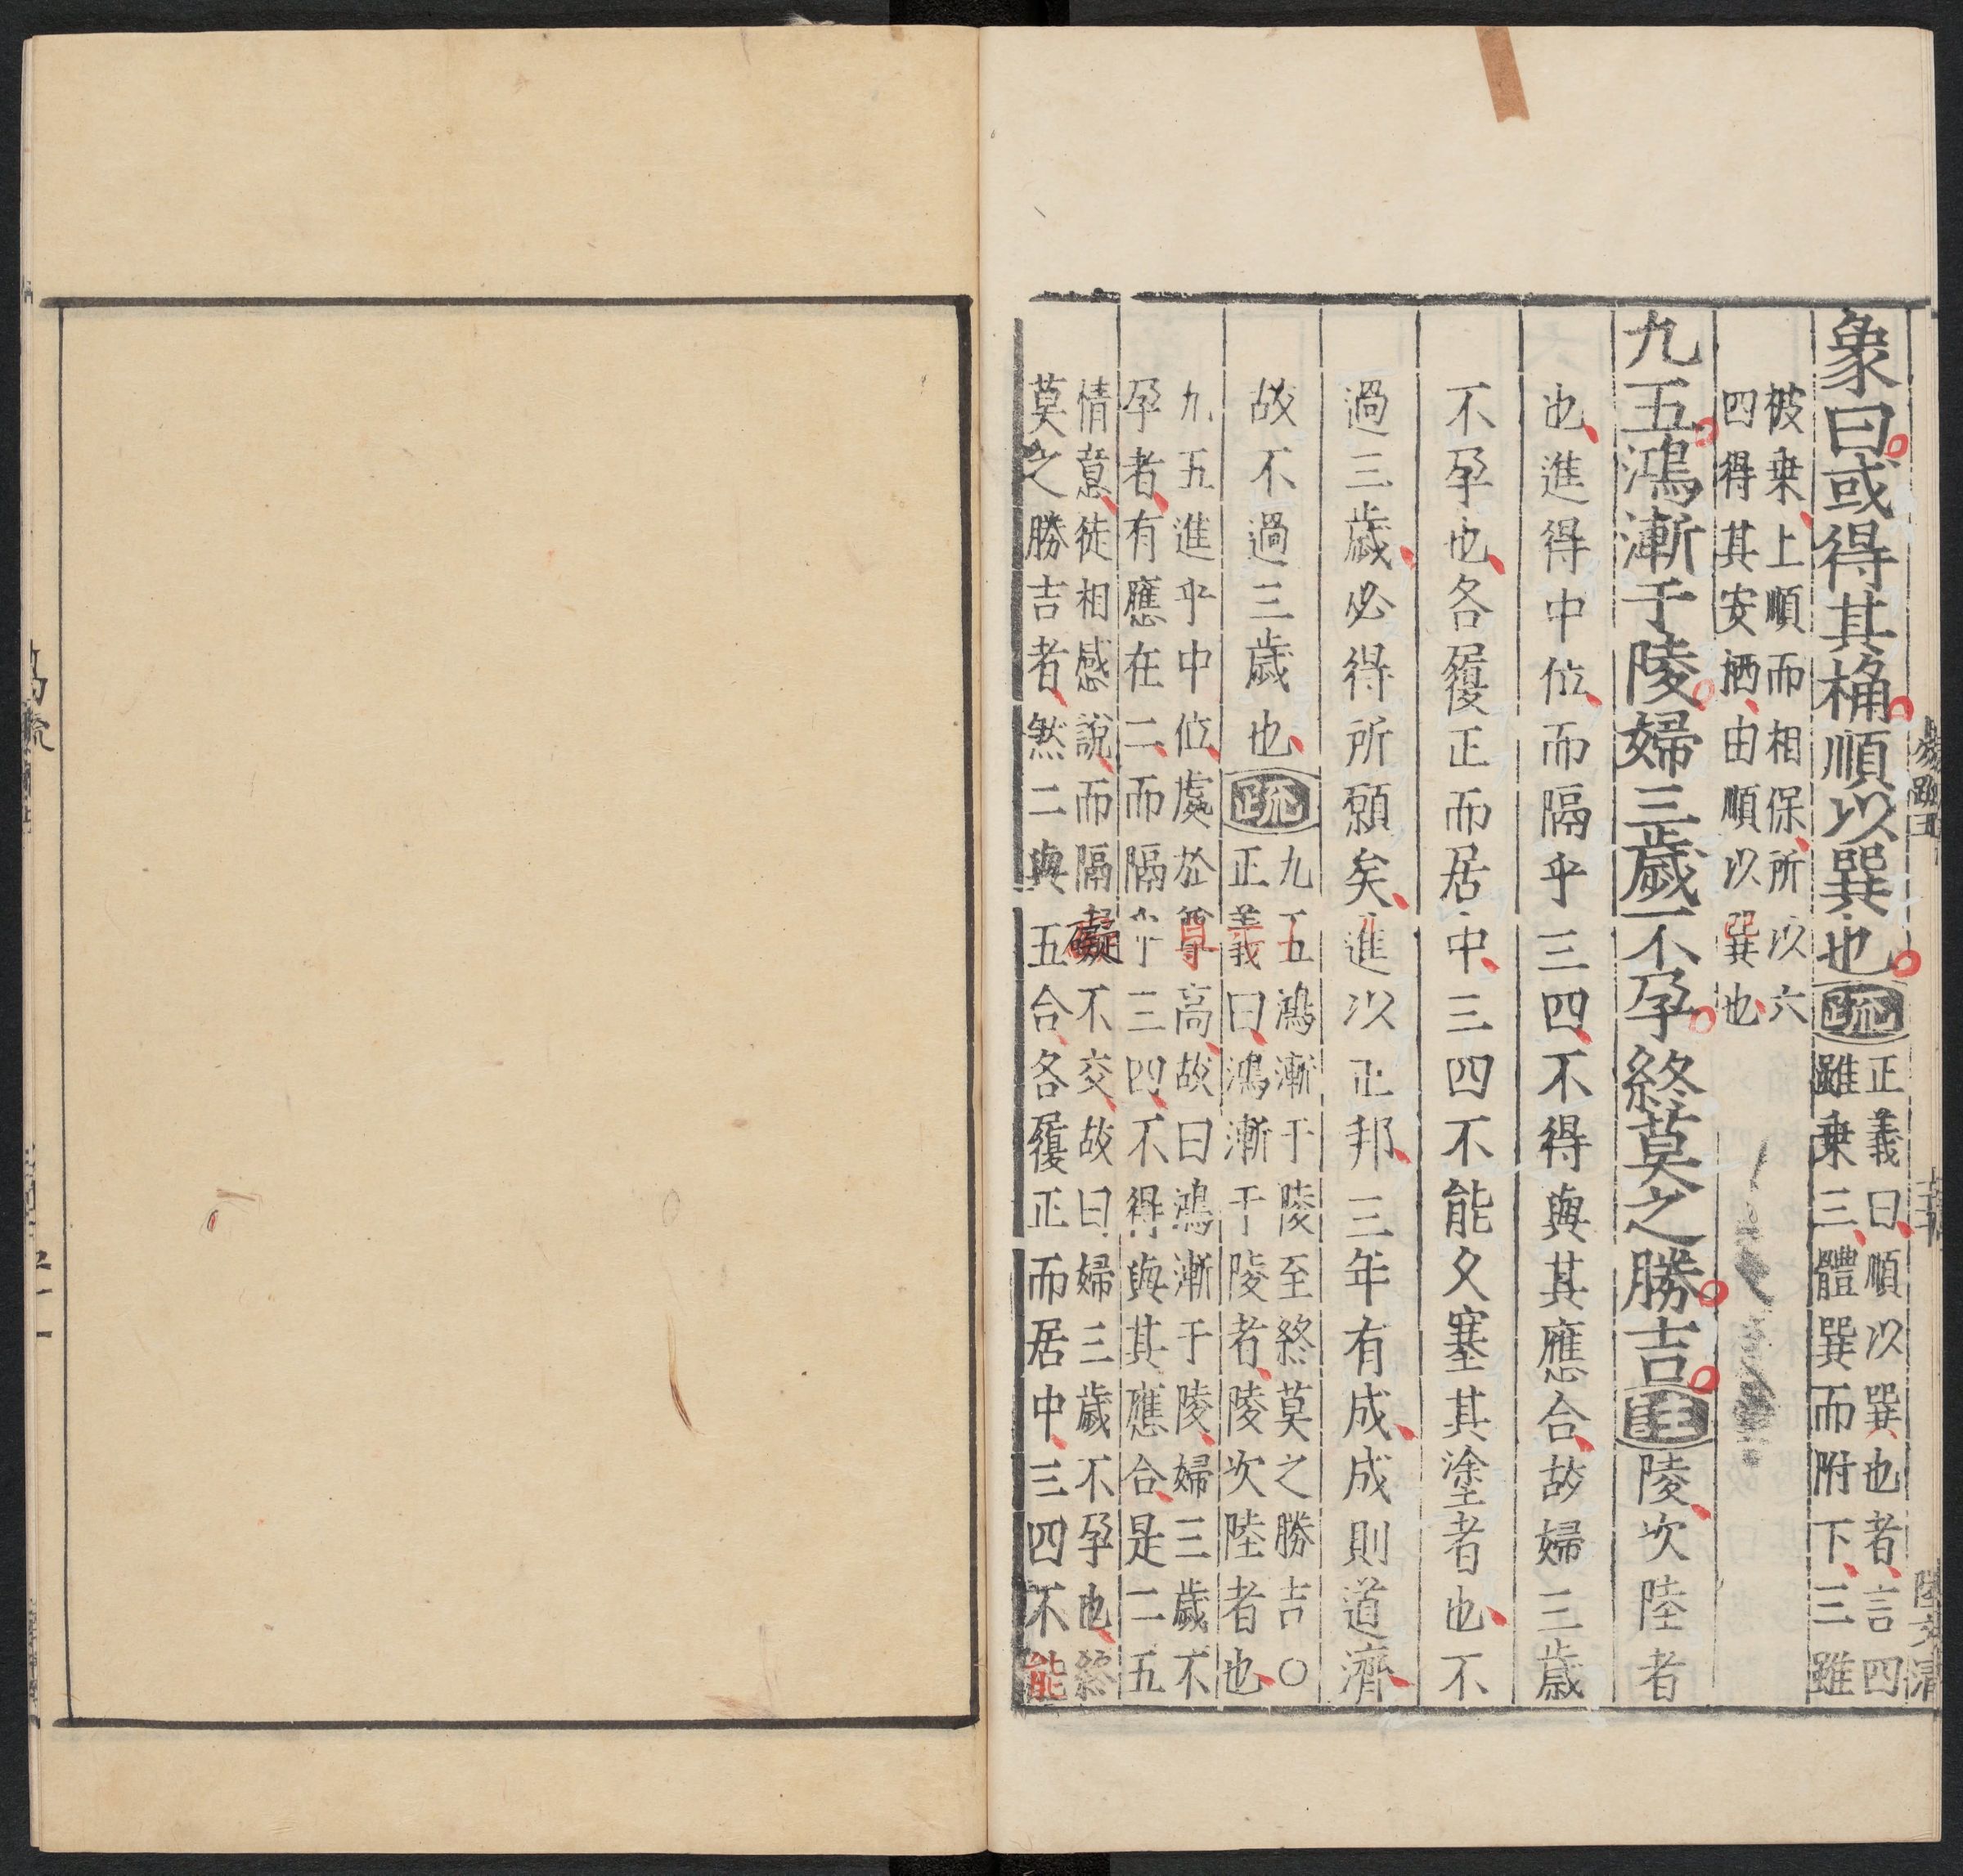 象曰或得其桷順以巽也疏
正義曰順以巽也者言四
雖乗三體巽而附下三雖
被乗上順而相保所以六
四得其安栖由順以巽也
九五鴻漸于陵婦三歲不孕終莫之勝吉註陵次陸者
也進得中位而隔乎三四不得與其應合故婦三歲
不孕也各履正而居中三四不能久塞其塗者也不
過三歲必得所願矣進以正邦三年有成成則道濟
故不過三歲也疏
九五鴻漸于陵至終莫之勝吉○
正義曰鴻漸于陵者陵次陸者也
九五進乎中位處於尊高故曰鴻漸于陵婦三歲不
孕者有應在二而隔乎三四不得與其應合是二五
情意徒相感說而隔礙不交故曰婦三歲不孕也終
莫之勝吉者然二與五合各履正而居中三四不能
陸文清